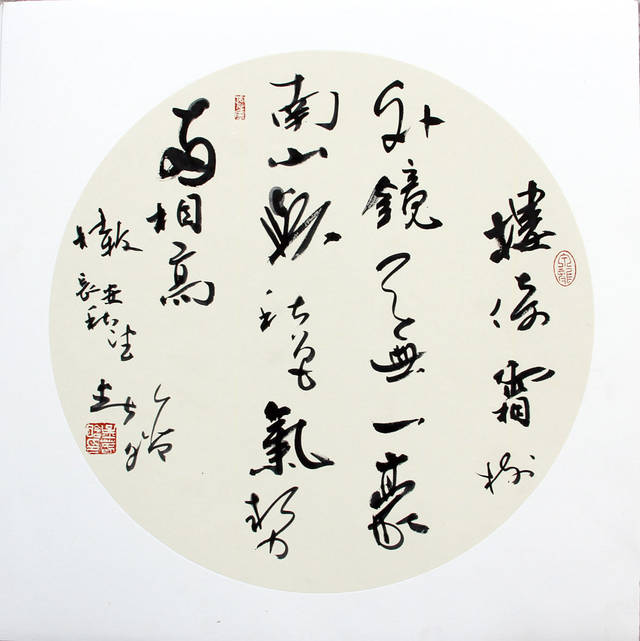 樓倚霜樹
外鏡天無一毫
南山與秋色氣勢
兩相高
杜牧長安秋望